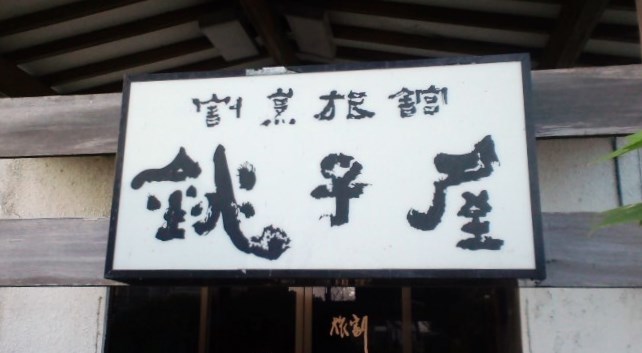 割烹旅館
銚子屋
旅割